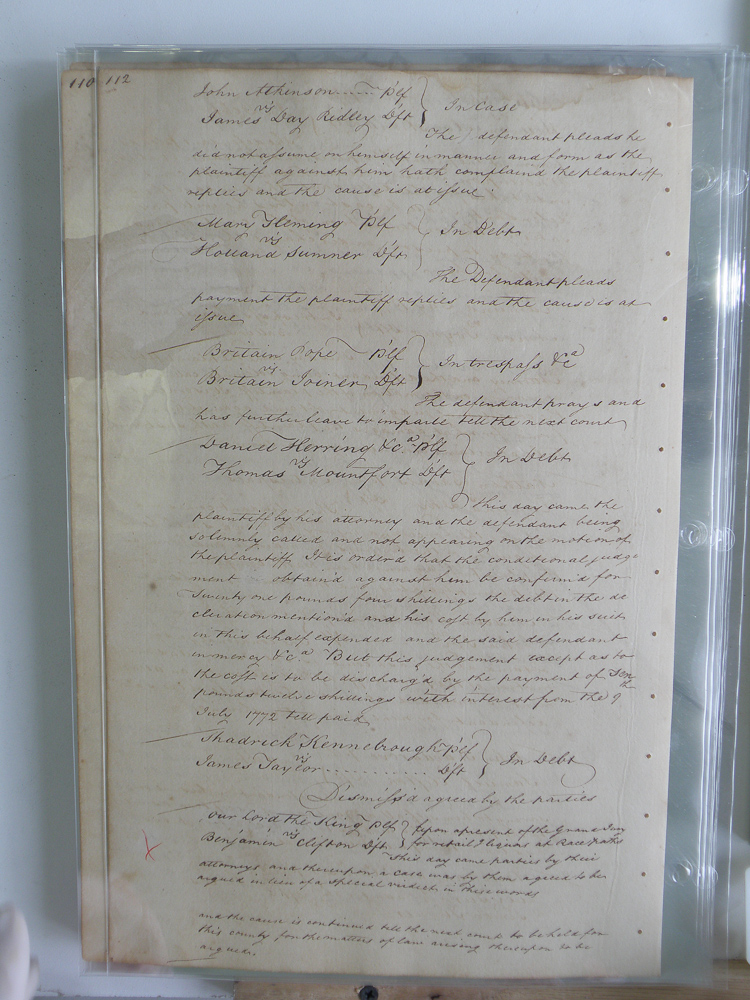 110 112
John Atkinson ...... Plf
vs
James Day Ridley Dft
In Case
The defendant pleads he
did not assume on himself in manner and form as the
plaintiff against him hath complaind the plaintiff
replies and the cause is at issue
Mary Fleming Plf
vs
Holland Sumner Dft
In Debt
The Defendant pleads
payment the plaintiff replies and the cause is at
issue
Britain Pope Plf
vs
Britain Joiner Dft
In trespass &ca
The defendant prays and
has further leave to imparle till the next court
Daniel Herring &ca Plf
vs
Thomas Mountfort Dft
In Debt
This day came the
plaintiff by his attorney and the defendant being
solemnly called and not appearing on the motion of
the plaintiff It is order'd that the conditional judge
ment obtain'd against him be confirm'd for
twenty one pounds four shillings the debt in the de
claration mention'd and his cost by him in his suit
in this behalf expended and the said defendant
in mercy &ca But this judgement except as to
the cost is to be discharg'd by the payment of Ten
pounds twelve shillings with interest from the 9th
July 1772 till paid
Shadrich Kennebrough Plf
vs
James Taylor ........... Dft
In Debt
Dismiss'd agreed by the parties
Our Lord the King Plf
vs
Benjamin Clifton Dft
Upon a present of the Grand Jury
for retail'g liquors at Race paths
This day came parties by their
attorneys and thereupon a case was by them agreed to be
argued in lieu of a special verdict in these words
and the cause is continued till the next court to be held for
this county for the matters of law arising thereupon to be
argued.